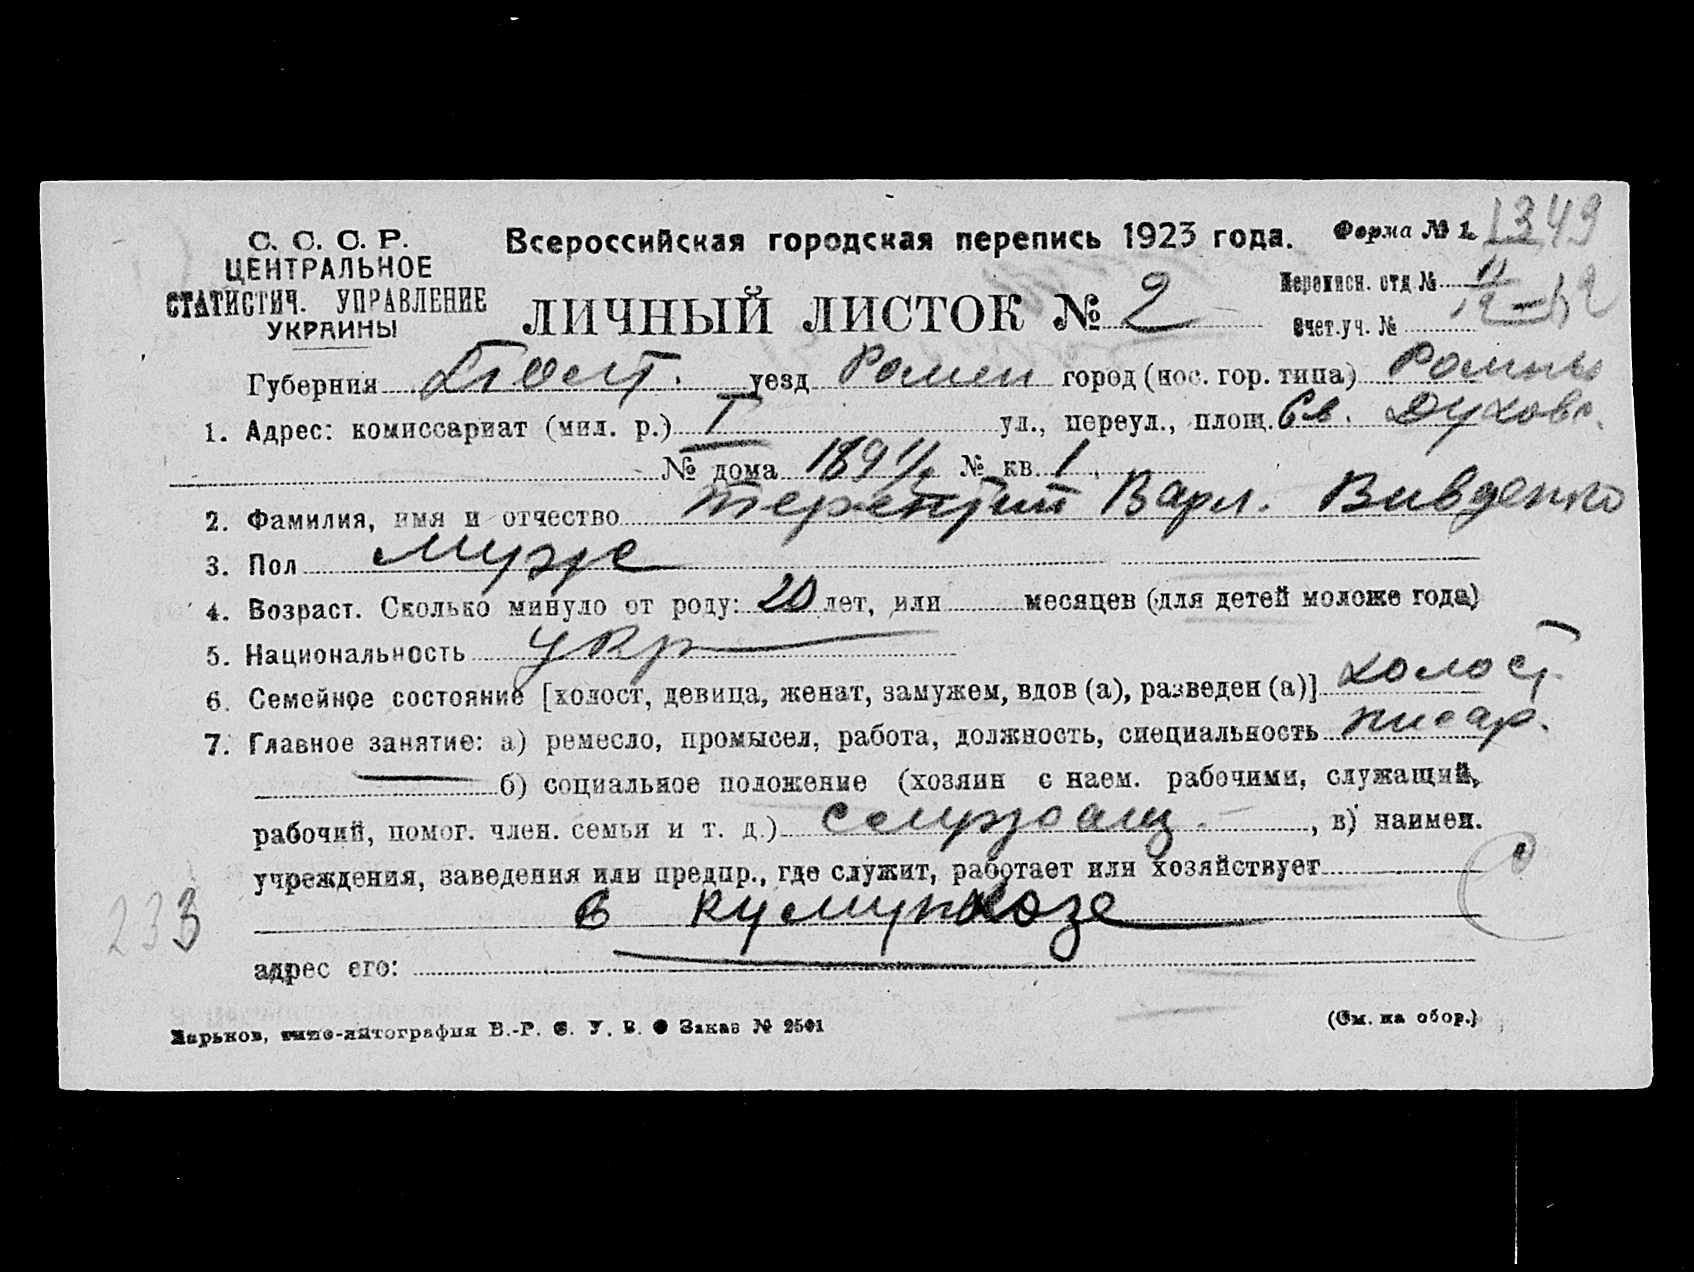 С. С. С. Р.
ЦЕНТРАЛЬНОЕ
СТАТИСТИЧ. УПРАВЛЕНИЕ
УКРАИНЫ
Всероссийская городская перепись 1923 года.
Форма № 1. 1349
ЛИЧНЫЙ ЛИСТОК № 2
Переписн. отд №
Счет.уч. №
Губерния Полт. уезд Ромен город (пос. гор. типа) Ромны
1. Адрес: комиссариат (мил. р.) I ул., переул., площ. Св. Духовс.
№ дома 189 № кв. 1
2. Фамилия, имя и отчество Терентий Варл. Вивденко
3. Пол муж
4. Возраст. Сколько минуло от роду: 20 лет, или месяцев (для детей моложе года)
5. Национальность укр
6. Семейное состояние [холост, девица, женат, замужем, вдов (а), разведен (а)] холост
7. Главное занятие: а) ремесло, промысел, работа, должность, специальность писар.
б) социальное положение (хозяин с наем. рабочими, служащий,
рабочий, помог. член. семьи и т. д.) служащ. , в) наимен.
учреждения, заведения или предпр., где служит, работает или хозяйствует
в
233
адрес его:
Харьков, типо-литография В.-Р. С. У. В. Заказ № 2501
(См. на обор.)